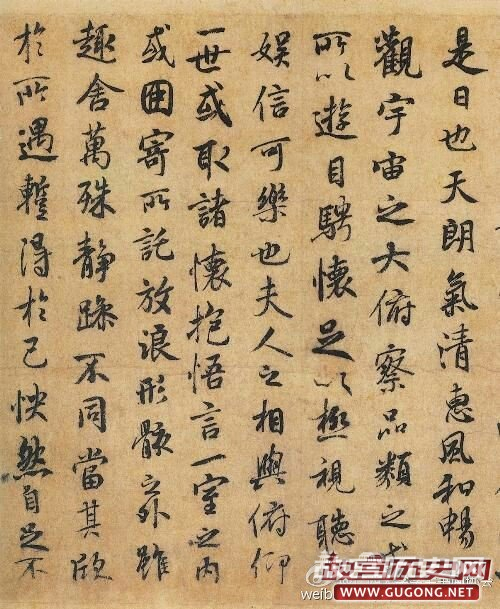 是日也天朗氣清惠風和暢
觀宇宙之大俯察品類之盛
所以遊目騁懷足以極視聽
娛信可樂也夫人之相與俯仰
一世或取諸懷抱悟言一室之內
或因寄所託放浪形骸之外雖
趣舍萬殊静躁不同當其欣
於所遇暫得於己怏然自足不
故宫历史网
WWW.GUGONG.NET